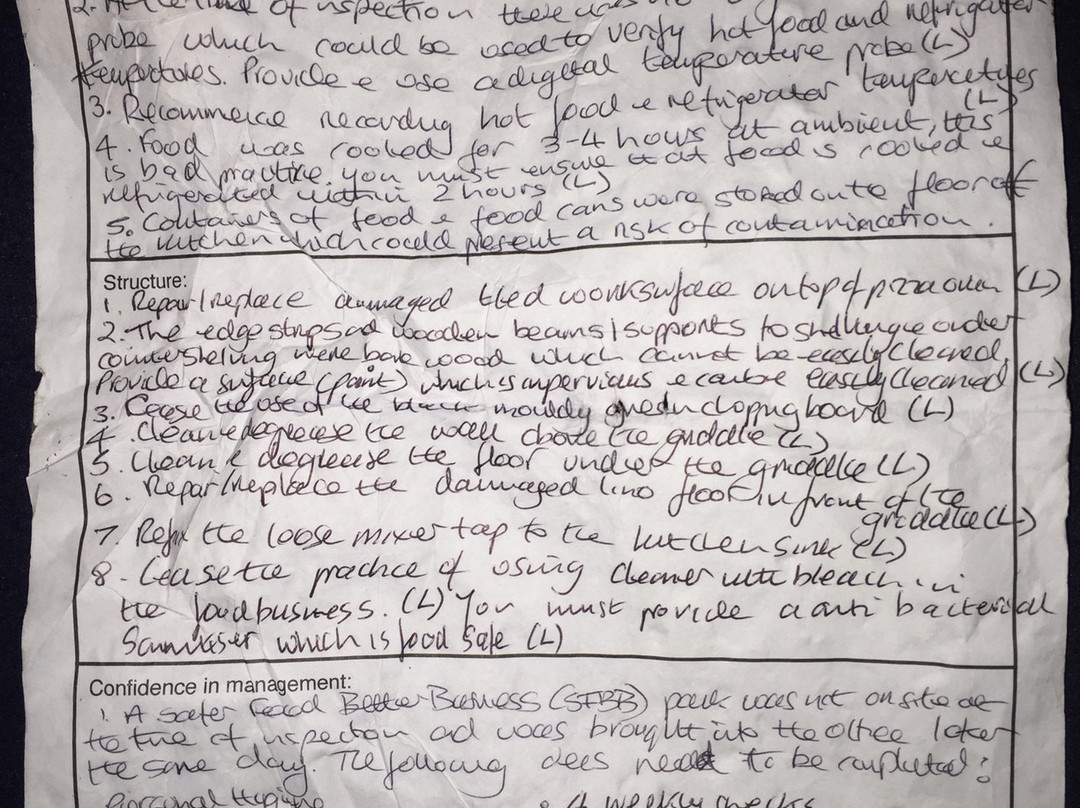 2. At the time of inspection there was no
probe which could be used to verify hot food and refrigerator
temperatures. Provide & use a digital temperature probe (L)
3. Recommence recording hot food & refrigerator temperatures
(L)
4. Food was cooked for 3-4 hours at ambient, this
is bad practice. you must ensure that food is cooled &
refrigerated within 2 hours (L)
5. Containers of food & food cans were stored onto floor of
the kitchen which could present a risk of contamination.
Structure:
1. Repair/replace damaged tiled worksurface on top of pizza oven (L)
2. The edge strips and wooden beams/supports to shelving under
counter shelving were bare wood which cannot be easily cleaned.
Provide a surface (paint) which is impervious & can be easily cleaned (L)
3. Cease the use of the black mouldy green chopping board (L)
4. Clean & degrease the wall above the griddle (L)
5. Clean & degrease the floor under the griddle (L)
6. Repair/replace the damaged lino floor in front of the
griddle (L)
7. Refix the loose mixer tap to the kitchen sink (L)
8. Cease the practice of using cleaner with bleach in
the food business. (L) You must provide a anti bacterial
Sanitiser which is food safe (L)
Confidence in management:
1. A safer Food Better Business (SFBB) pack was not on site at
the time of inspection and was brought into the office later
the same day. The following does need to be completed:
Personal Hygiene • 4 weekly checks